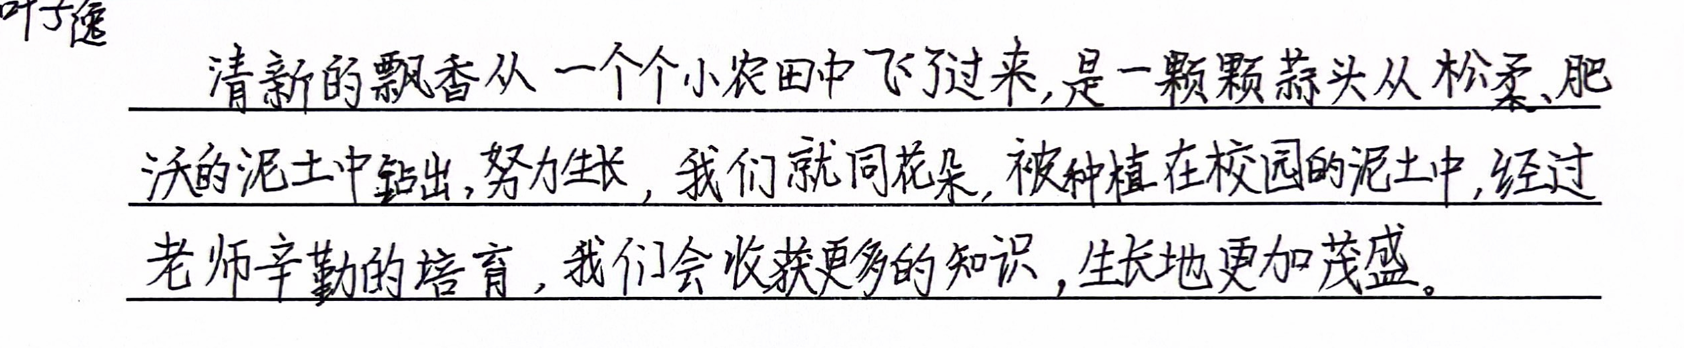 叶子逸
清新的飘香从一个个小农田中飞了过来,是一颗颗蒜头从松柔、肥
沃的泥土中钻出,努力生长,我们就同花朵,被种植在校园的泥土中,经过
老师辛勤的培育,我们会收获更多的知识,生长地更加茂盛。